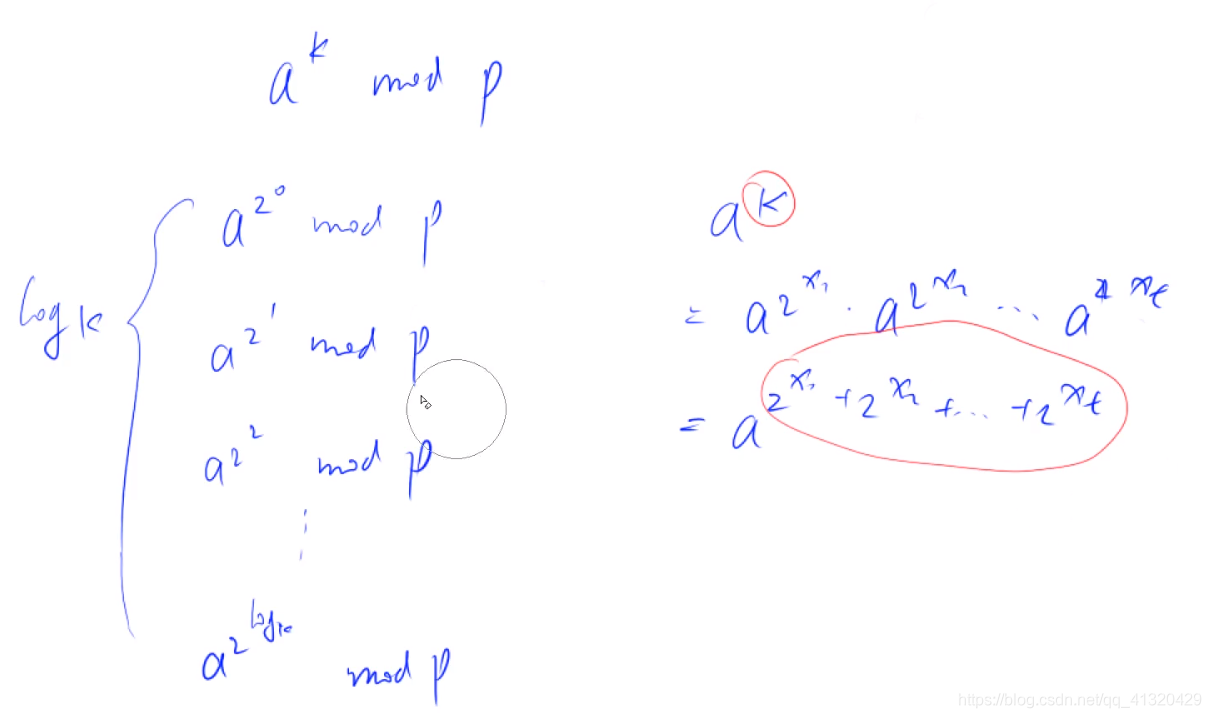 a^k mod p
a^{2^0} mod p
log k
a^{2^1} mod p
a^{2^2} mod p
⋮
a^{2^{log k}} mod p
a^k
= a^{2^{x_1}} · a^{2^{x_2}} ... a^{2^{x_t}}
= a^{2^{x_1} + 2^{x_2} + ... + 2^{x_t}}
https://blog.csdn.net/qq_41320429